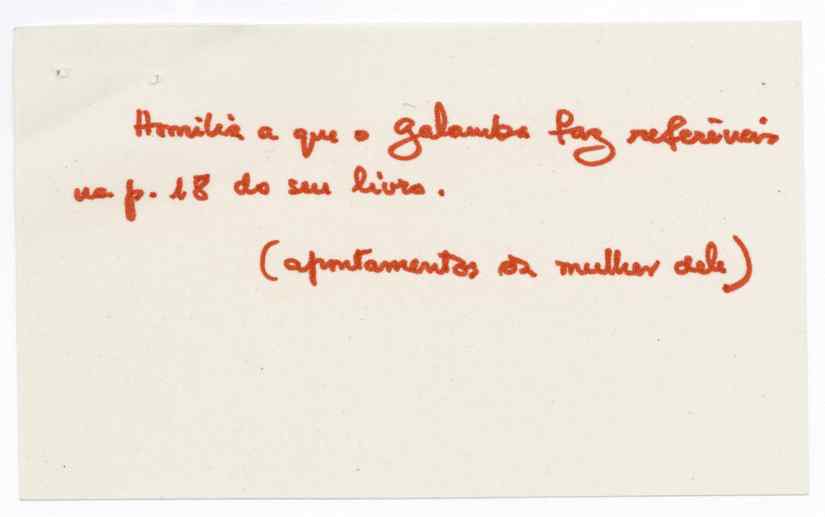 Homilia a que o Galamba faz referência
na p. 18 do seu livro.
(apontamentos da mulher dele)